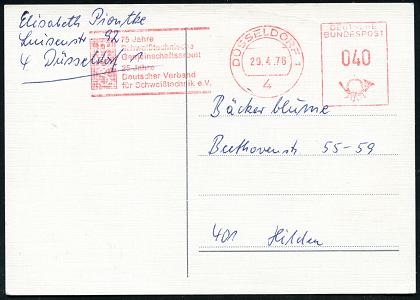 Elisabeth Piontke
Luisenstr 92
4 Düsseldorf 1
75 Jahre
Schweißtechnische
Gemeinschaftsarbeit
25 Jahre
Deutscher Verband
für Schweißtechnik e.V.
DÜSSELDORF 1
29.4.76
4
DEUTSCHE
BUNDESPOST
040
Bäcker blume
Beethovenstr 55-59
401 Hilden